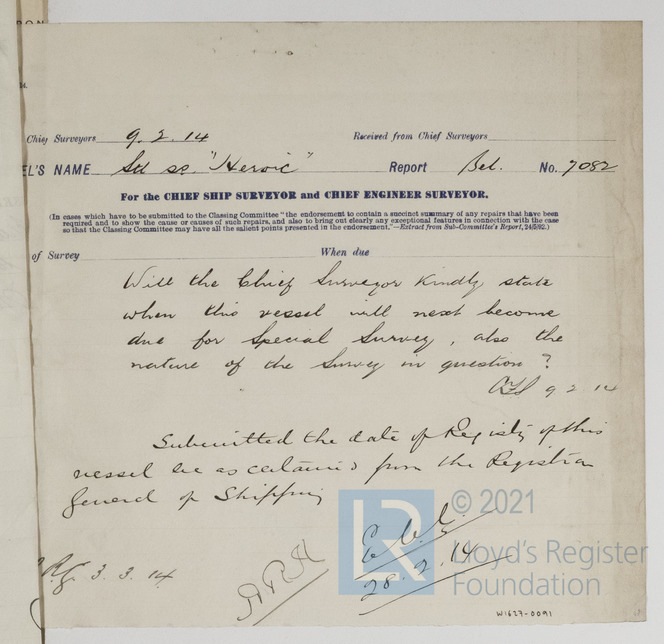 Chief Surveyors 9.2.14 Received from Chief Surveyors
EL'S NAME Sd ss. "Heroic" Report Bel. No. 7082
For the CHIEF SHIP SURVEYOR and CHIEF ENGINEER SURVEYOR.
(In cases which have to be submitted to the Classing Committee "the endorsement to contain a succinct summary of any repairs that have been
required and to show the cause or causes of such repairs, and also to bring out clearly any exceptional features in connection with the case
so that the Classing Committee may have all the salient points presented in the endorsement."—Extract from Sub-Committee's Report, 24/5/92.)
of Survey When due
Will the Chief Surveyor kindly state
when this vessel will next become
due for Special Survey, also the
nature of the Survey in question?
9 2 14
Submitted the date of Registry of this
vessel be ascertained from the Registrar
General of Shipping
28.2.14
3.3.14
LR
© 2021
Lloyd's Register
Foundation
W1627-0091